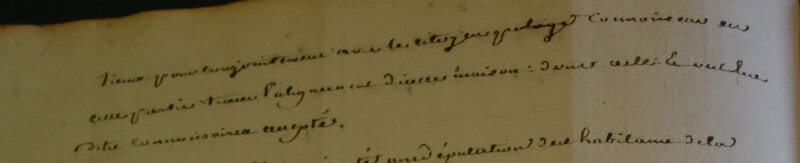 vieux pour conjointement avec le citoyen connoisseur en
cette partie tracer l'alignement d'icelle maison : dont acte. Le
dit commissaire accepté.
députation des habitans de la